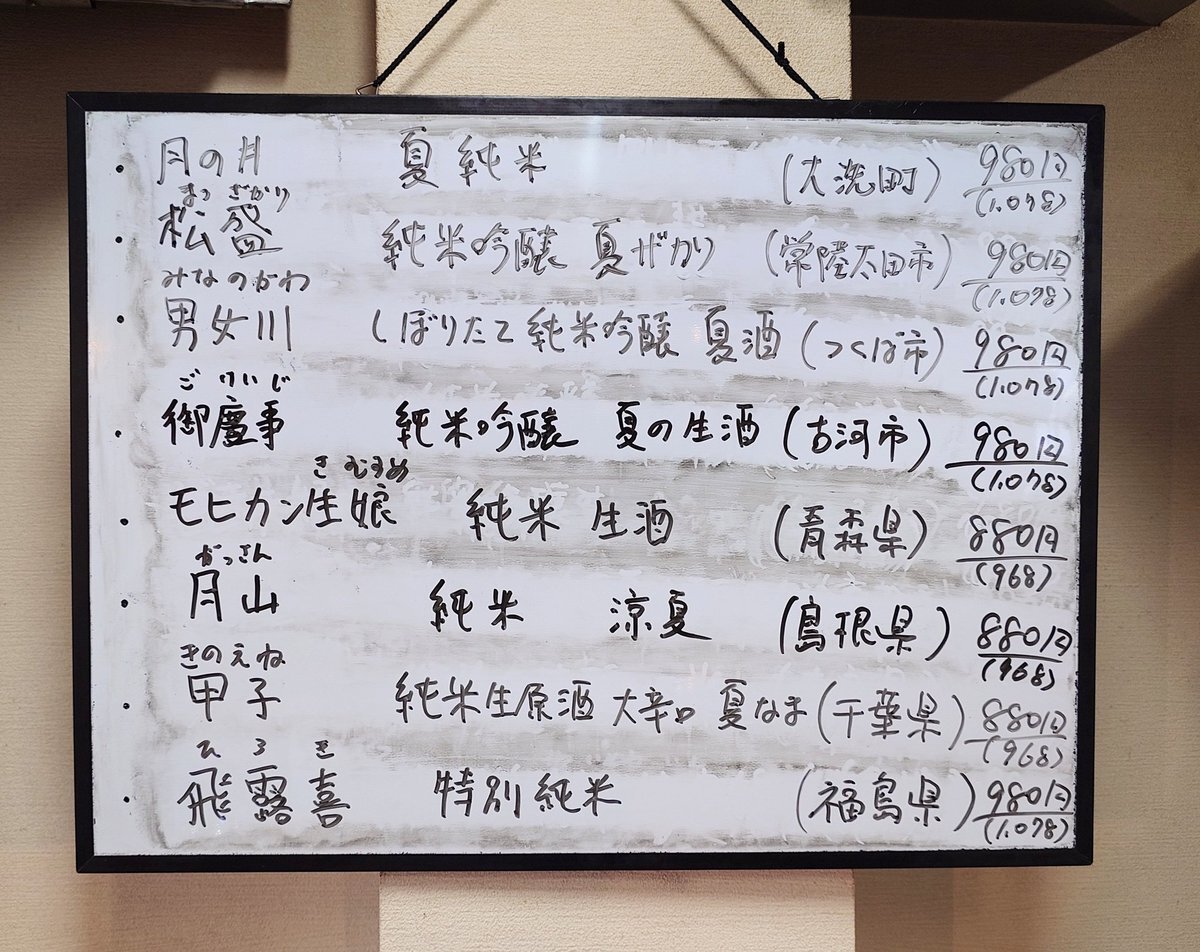 ・月の井 夏純米 (大洗町) 980円
(1.078)
まつざかり
・松盛 純米吟醸 夏ざかり (常陸太田市) 980円
(1.078)
みなのかわ
・男女川 しぼりたて純米吟醸 夏酒 (つくば市) 980円
(1.078)
ごけいじ
・御慶事 純米吟醸 夏の生酒 (古河市) 980円
(1.078)
きむすめ
・モヒカン生娘 純米 生酒 (青森県) 880円
(968)
がっさん
・月山 純米 涼夏 (島根県) 880円
(968)
きのえね
・甲子 純米生原酒 大辛口 夏なま (千葉県) 880円
(968)
ひろき
・飛露喜 特別純米 (福島県) 980円
(1.078)